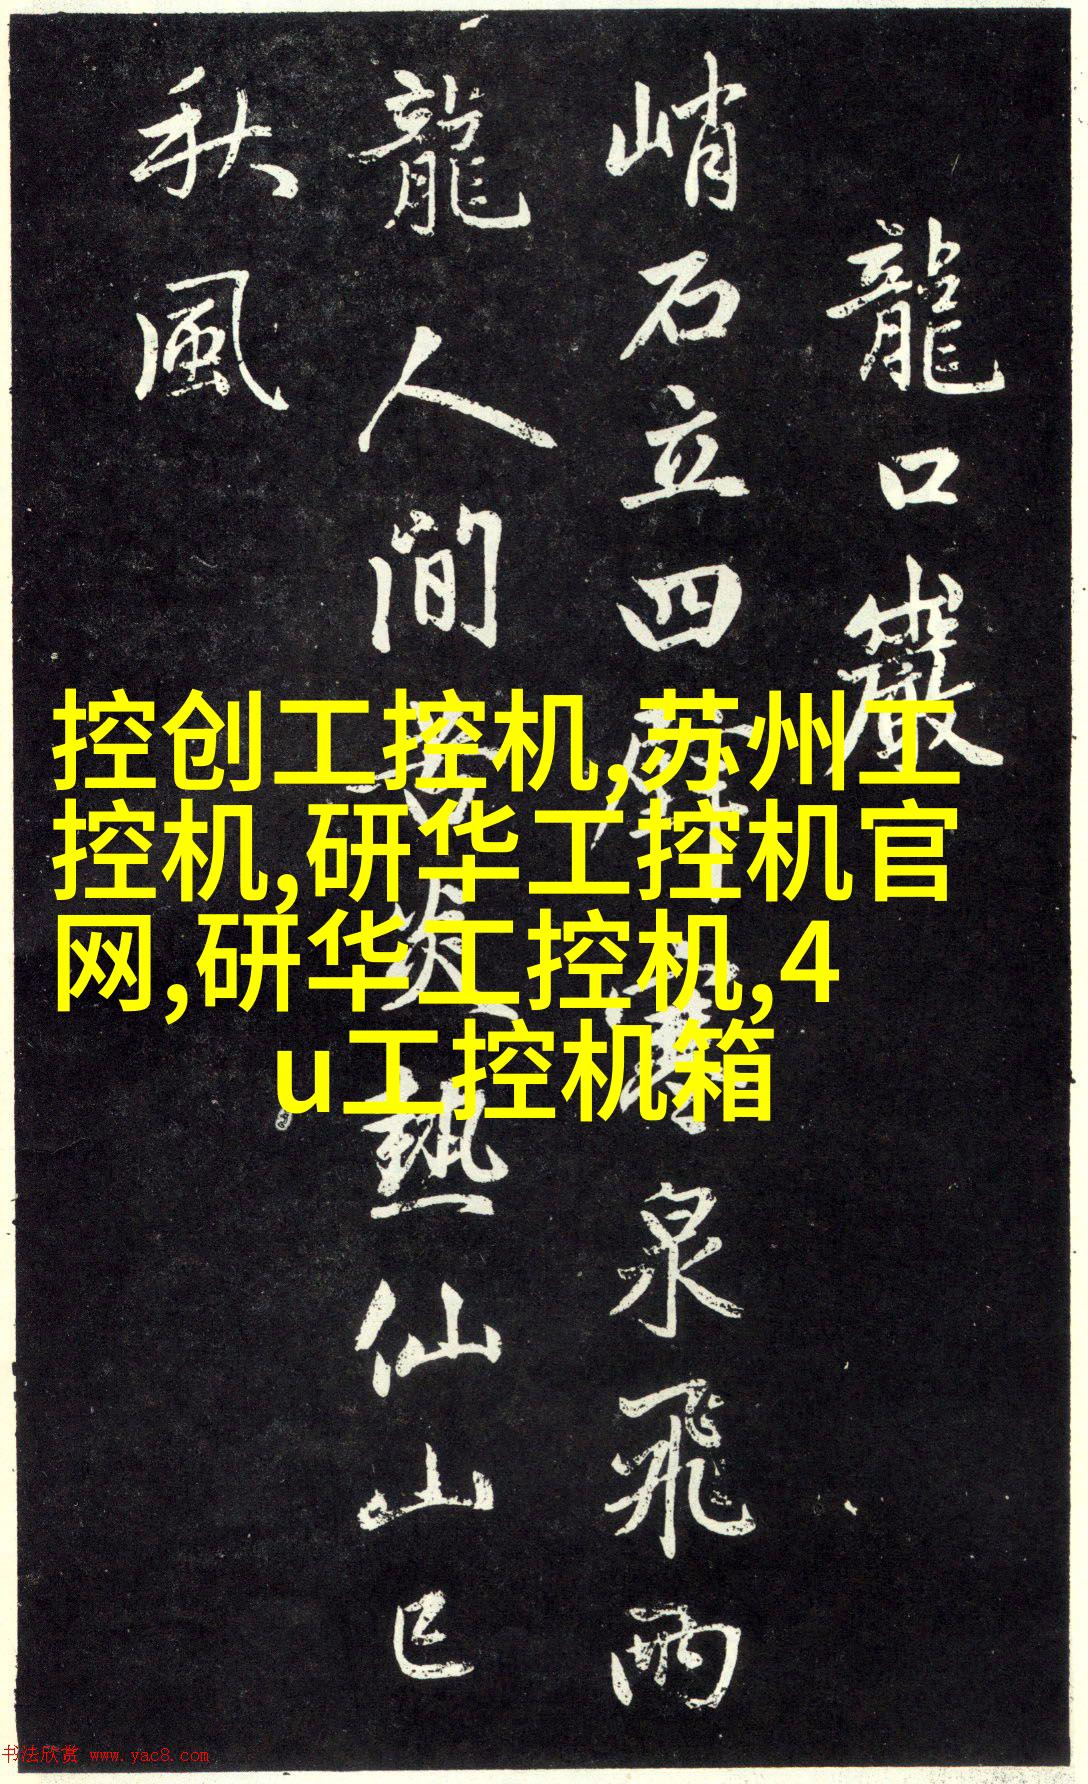 龍口巖
峭石立四壁寒泉飛兩
龍人間苦炎熱仙山已
秋風
控创工控机,苏州工
控机,研华工控机官
网,研华工控机,4
u工控机箱
书法欣赏 www.yac8.com